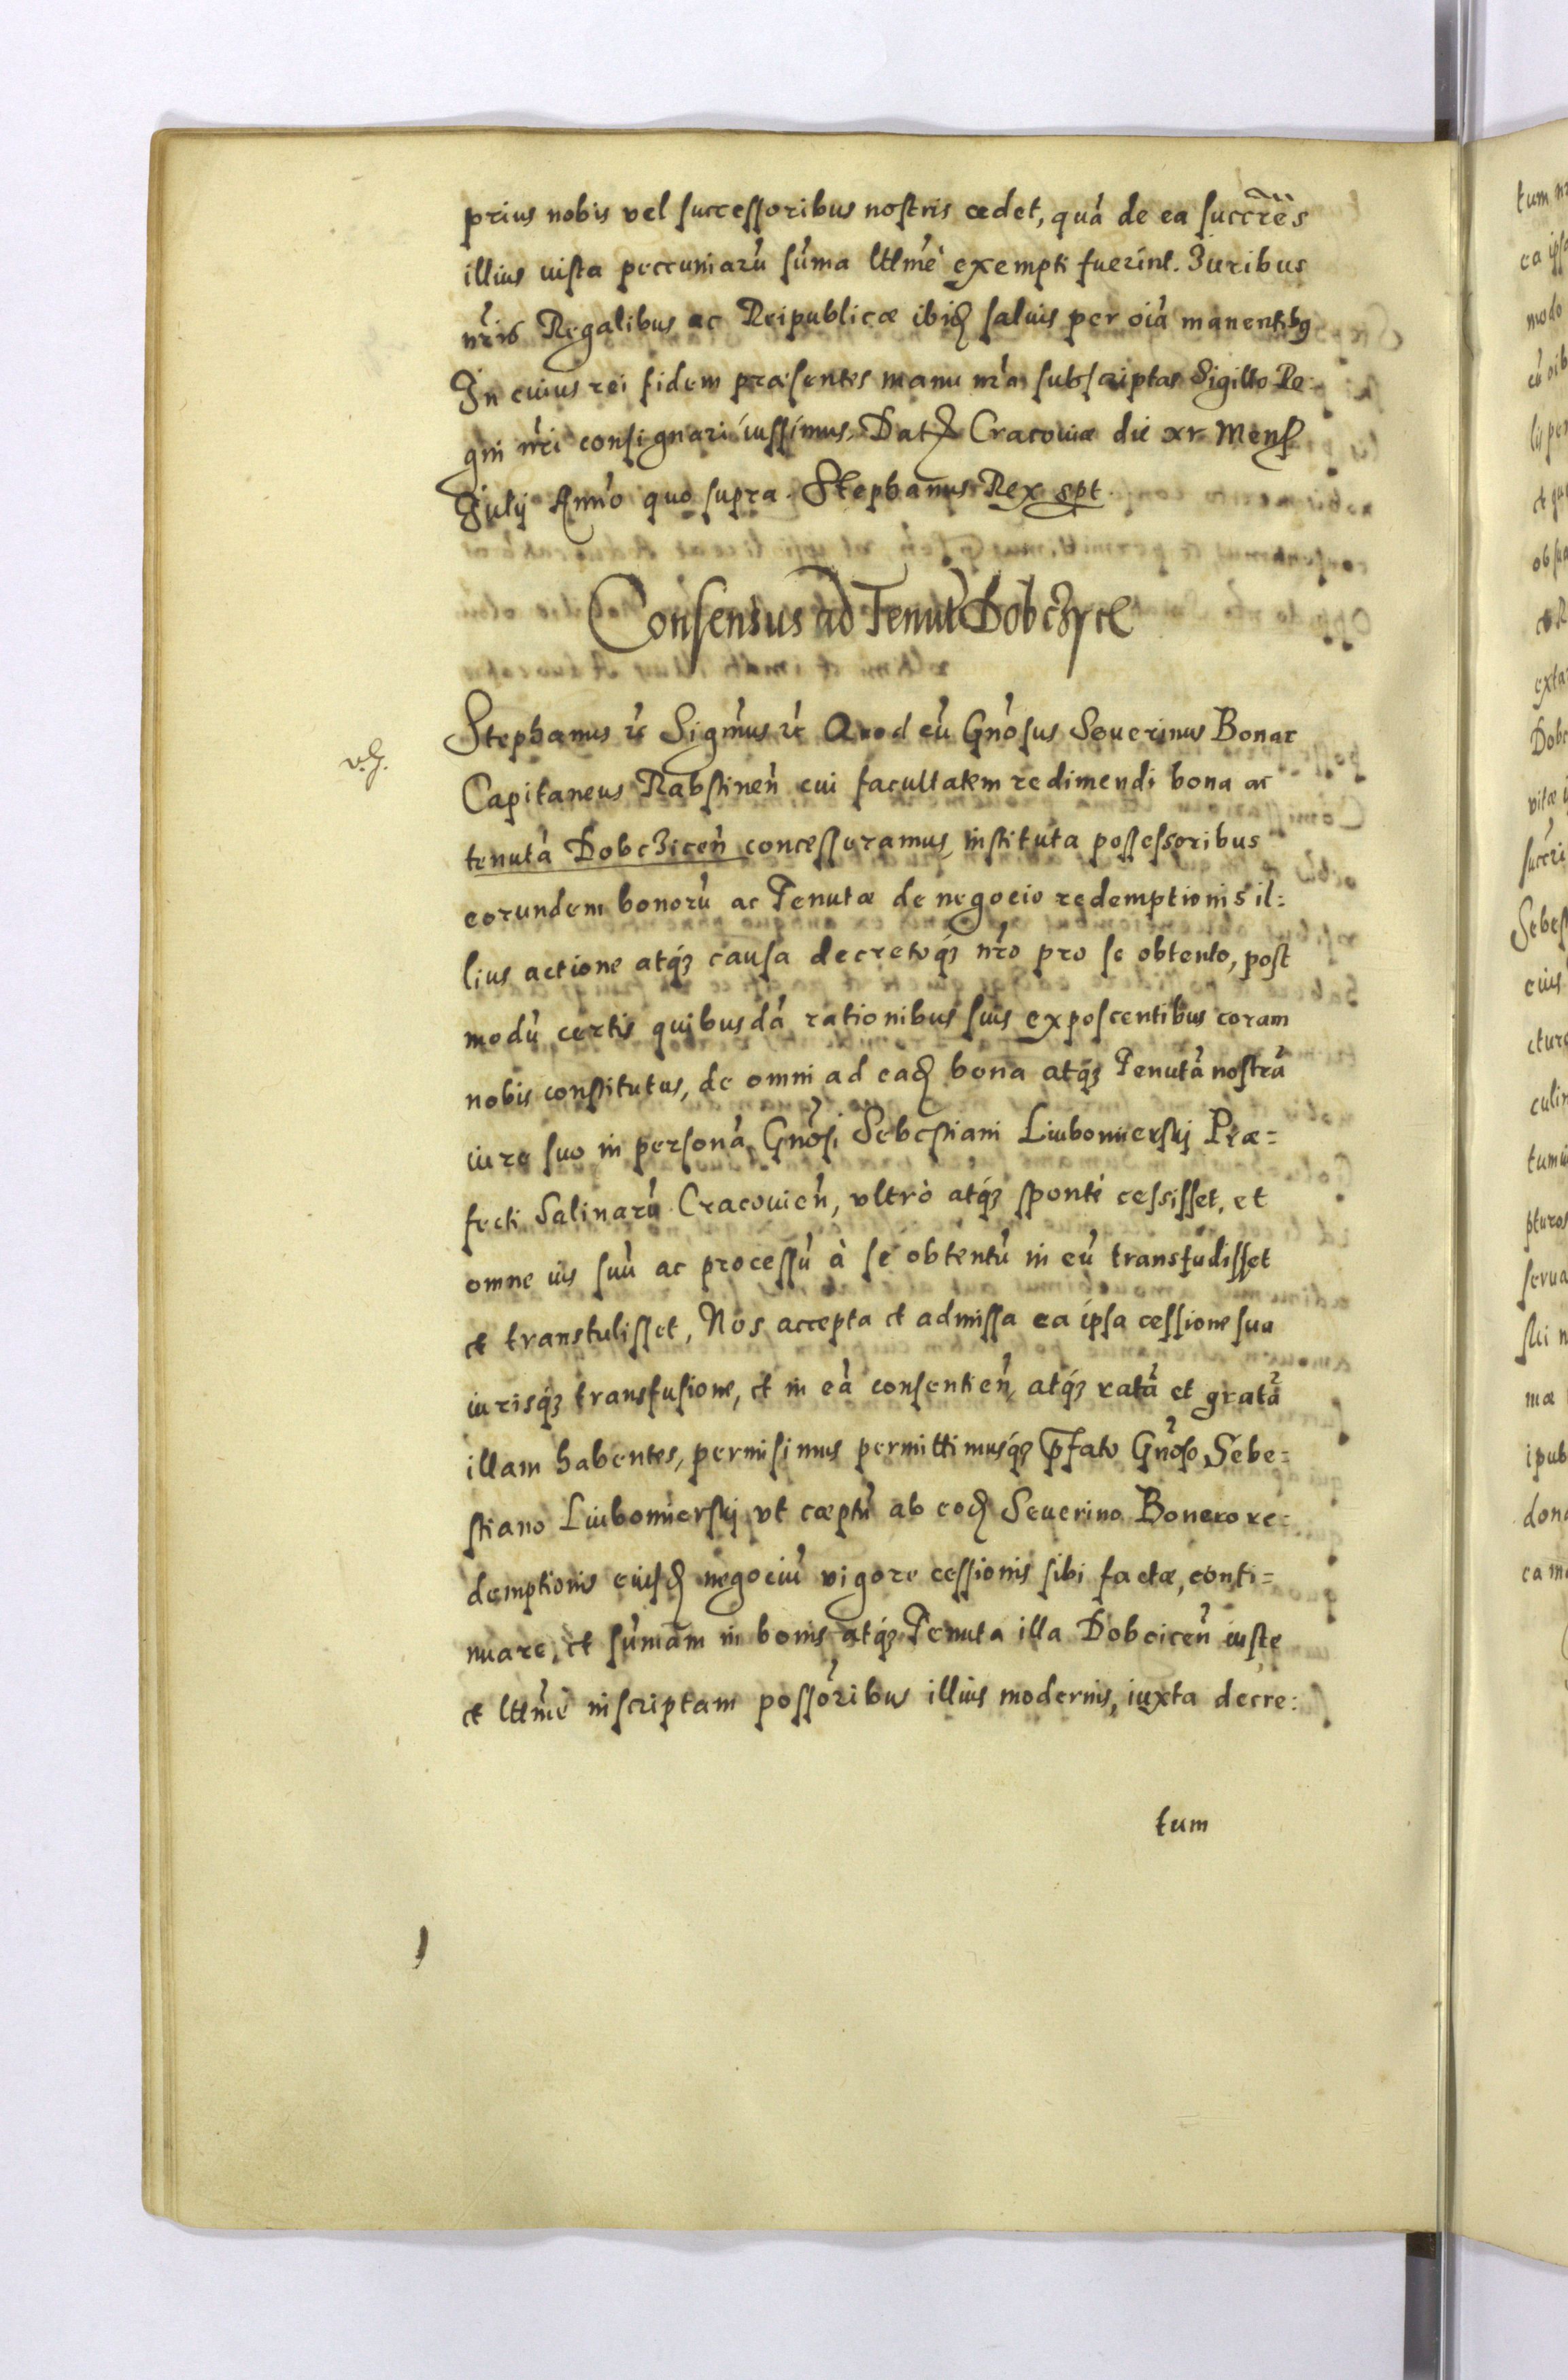 prius nobis vel successoribus nostris cedet, quá de ea succr̃es
illius iusta peccuniarú súma lttlmé exempti fuerint. Iuribus
nr̃is Regalibus ac Reipublicæ ibid saluis per oiá manentibq
In cuius rei fidem præsentes manu nr̃a subscriptas Sigillo Re-
gni nr̃i consignari iussimus, Dat Cracouiæ die xv Mens
Iulij Anno quo supra. Stephanus Rex spt
Consensus ad Tenut Dobczyce
Stephanus &c Sigmus &c Quod cú Gnosus Seuerinus Bonar
Capitaneus Rabstinen cui facultatem redimendi bona ac
tenutá Dobczicen concesseramus, instituta possessoribus
eorundem bonorú ac Tenutæ de negocio redemptionis il:
lius actione atq́ causa decretoq́ nr̃o pro se obtento, post
modú certis quibusdá rationibus suis exposcentibus coram
nobis constitutus, de omni ad ead bona atq́ Tenutá nostrá
iure suo in personá Gnosi Sebestiani Liubomierskj Præ=
fecti Salinarú Cracouien, vltrò atq́ sponte cessisset, et
omne ius suú ac processú à se obtentú in eú transfudisset
et transtulisset, Nos accepta et admissa ea ipsa cessione sua
iurisq́ transfusione, et in eá consentien, atq́ ratá et gratá
illam habentes, permisimus permittimusq́ p̃fato Gnoso Sebe=
stiano Liubomierskj vt cæptú ab eod Seuerino Bonero re=
demptionis eiusd negociú vigore cessionis sibi factæ, conti=
nuare, et súmam in bonis atq́ Tenuta illa Dobcicen iuste
et lttlmé inscriptam possoribus illius modernis, iuxta decre:
tum